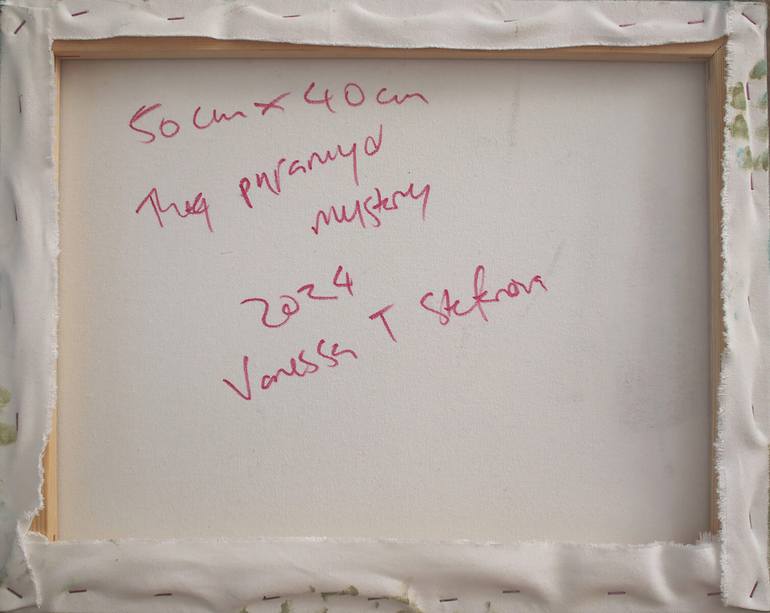 50cm x 40cm
The pyramyd
mystery
2024
Vanessa T Stefanova